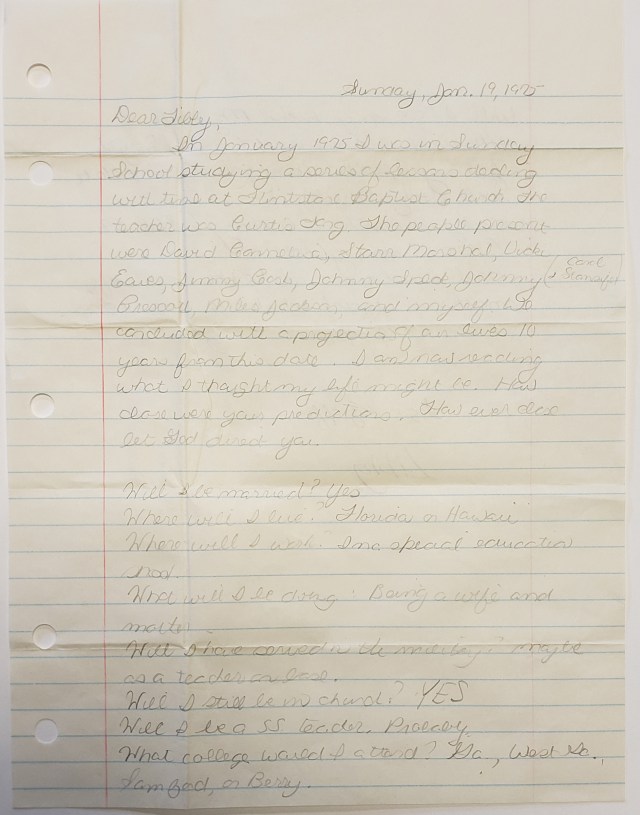 Sunday, Jan. 19, 1975
Dear Libby,
In January 1975 I was in Sunday
School studying a series of lessons dealing
with time at Flintstone Baptist Church. The
teacher was Curtis King. The people present
were David Starr Marshal, Vicki
Eaves, Jimmy Cash, Johnny Speck, Johnny (+ Carl
and myself. We
concluded with a projection of our lives 10
years from this date. I am now reading
what I thought my life might be. How
close were your predictions. How ever close
let God direct you.
Will I be married? Yes
Where will I live? Florida or Hawaii
Where will I work? In a special education
school.
What will I be doing? Being a wife and
mother.
Will I have served in the military? maybe
as a teacher on base.
Will I still be in church? YES
Will I be a SS teacher. Probably
What college would I attend? Ga., West Ga.,
Samford, or Berry.